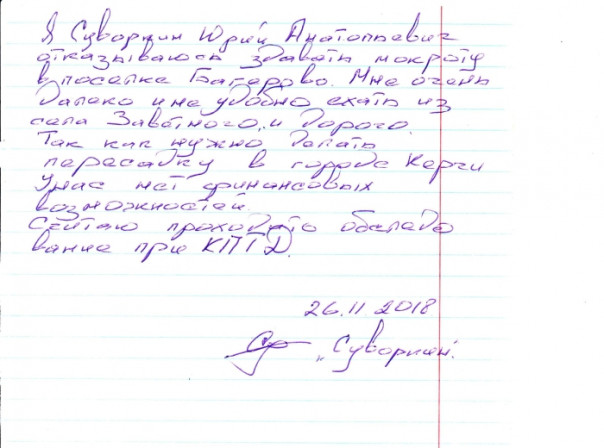 Я Суворкин Юрий Анатольевич
отказываюсь здавать мокроту
в поселке Багерово. Мне очень
далеко и не удобно ехать из
села Заветного, и дорого.
Так как нужно делать
пересадку в городе Керчи
У нас нет финансовых
возможностей.
Сейтаю проходить обследо
вание при КПТД.
26.11 2018
"Суворкин".